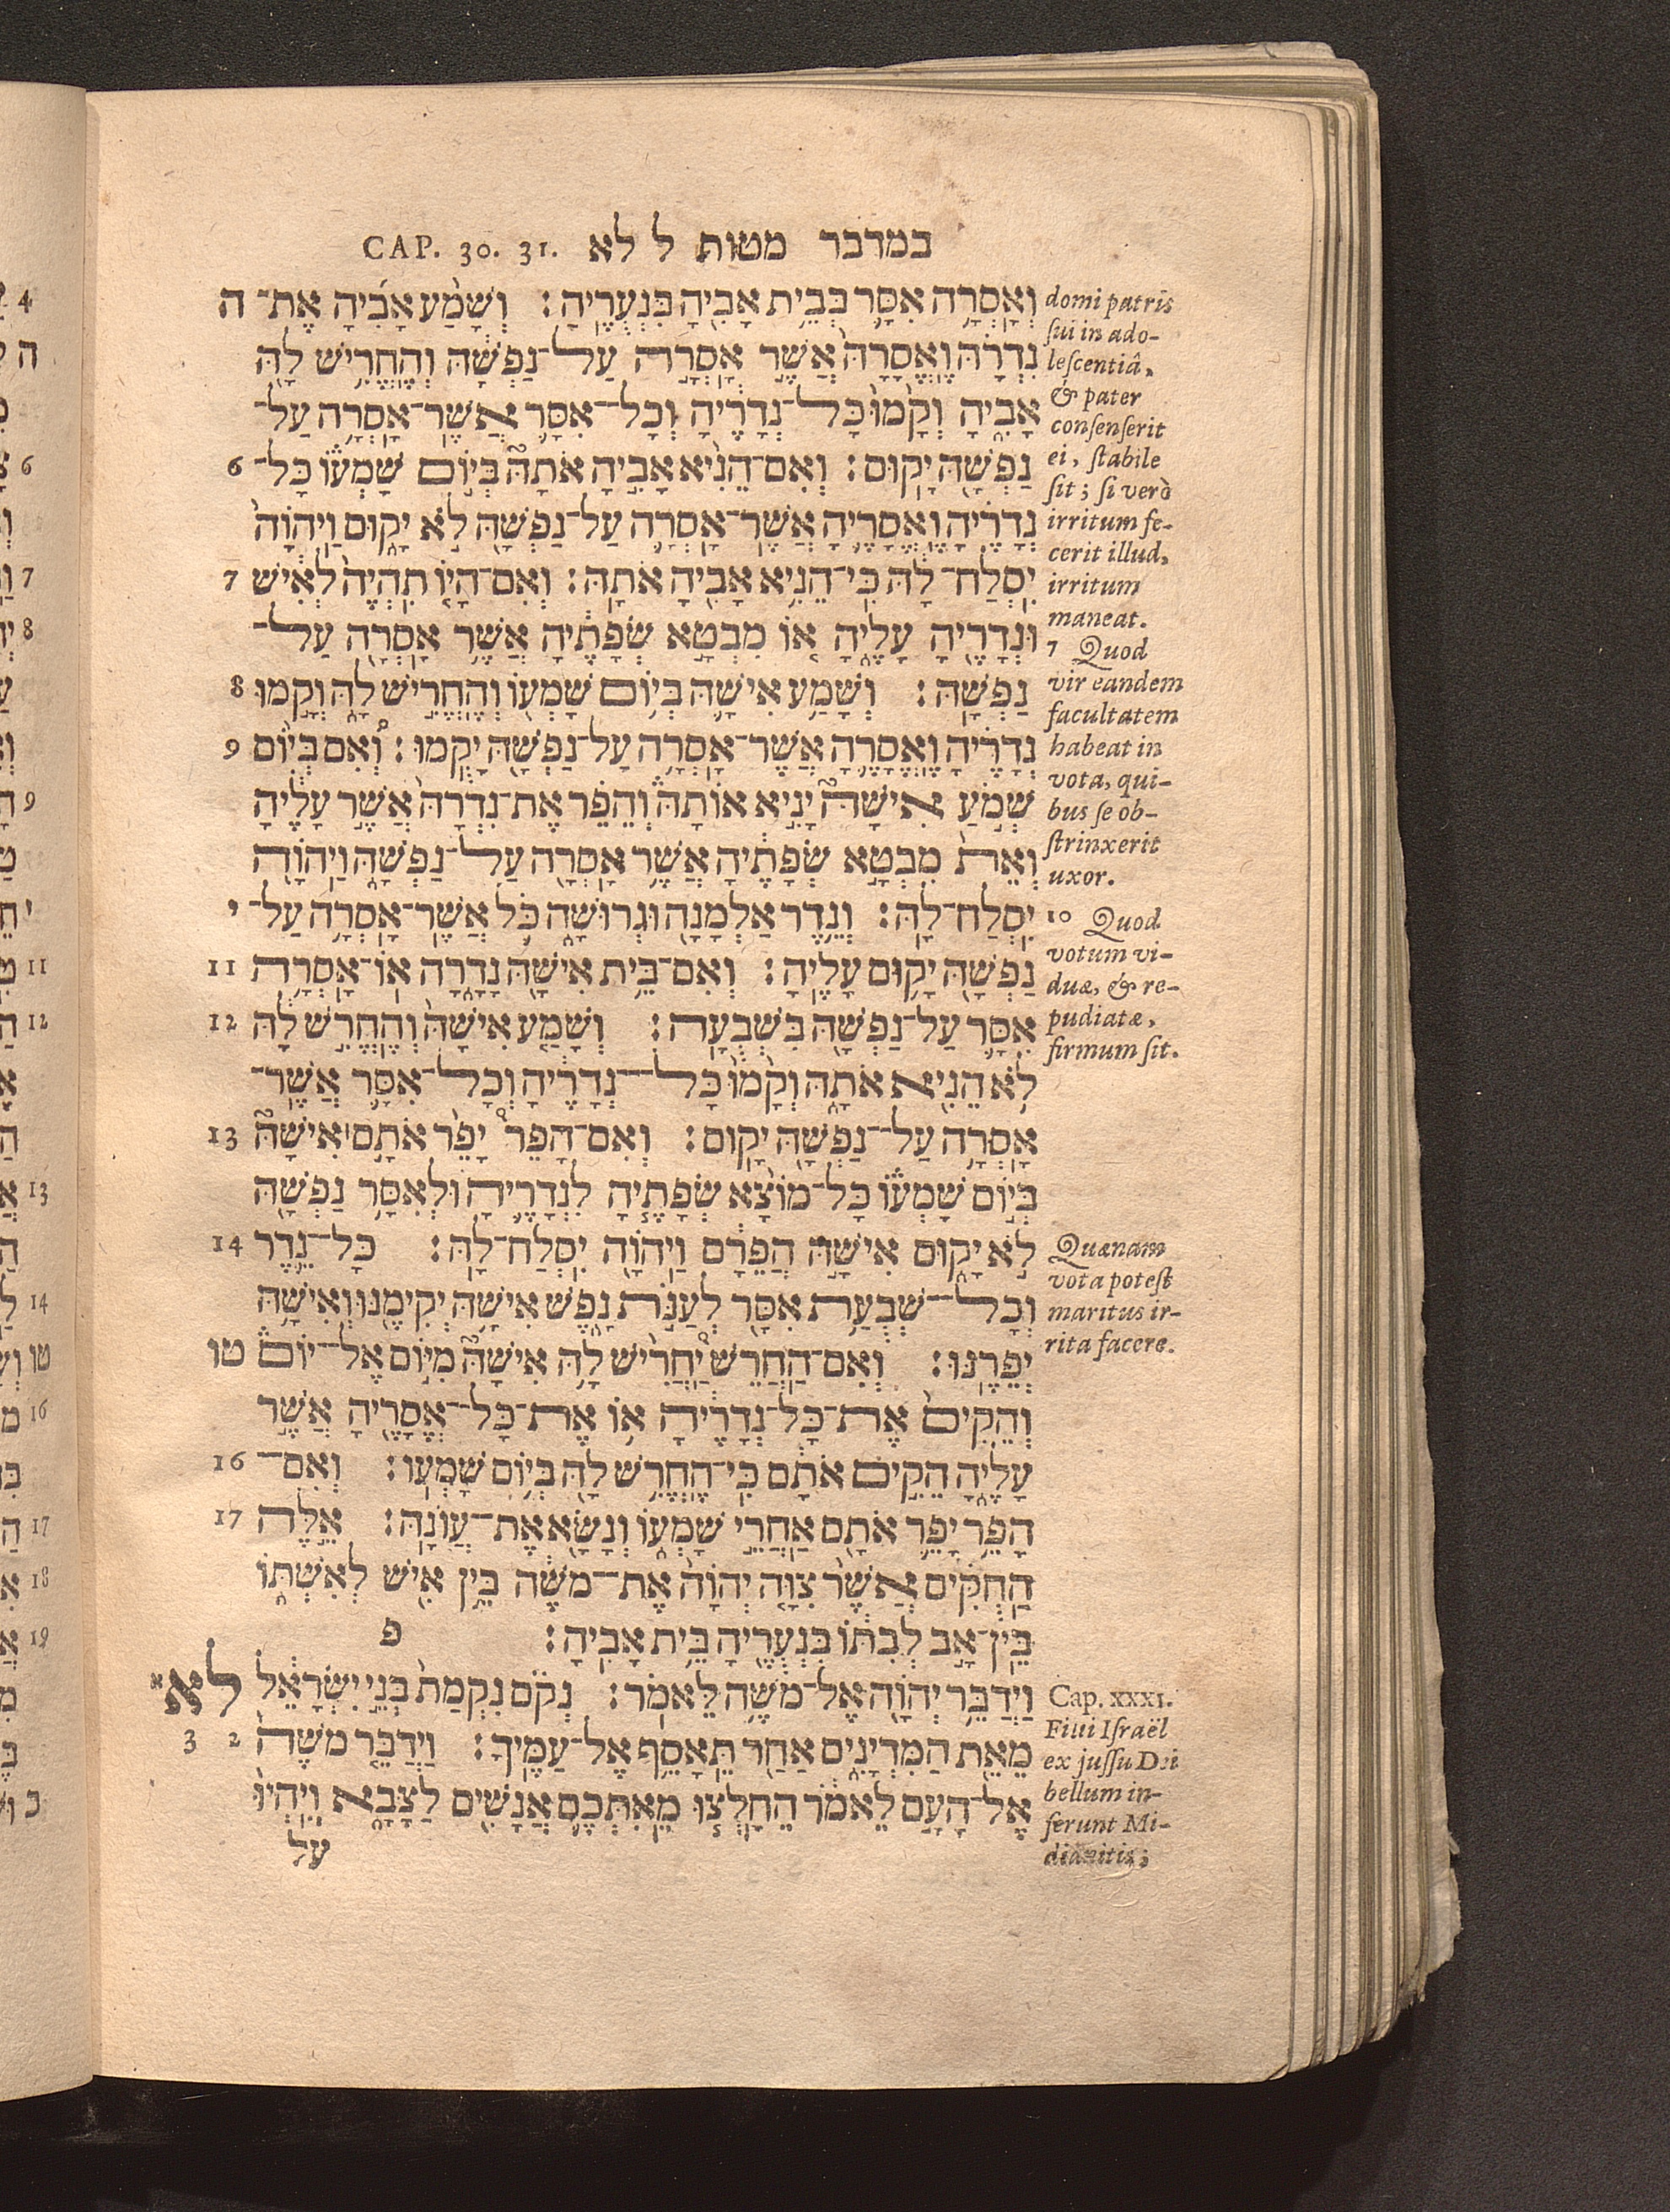 במדבר מטות ל לא CAP. 30. 31.
וְאָסְרָה אִסָּר בְּבֵית אָבִיהָ בִּנְעֻרֶיהָ׃ וְשָׁמַע אָבִיהָ אֶת־ ה
נִדְרָהּ וֶאֱסָרָהּ אֲשֶׁר אָסְרָה עַל־נַפְשָׁהּ וְהֶחֱרִישׁ לָהּ
אָבִיהָ וְקָמוּ כָּל־נְדָרֶיהָ וְכָל־אִסָּר אֲשֶׁר־אָסְרָה עַל־
נַפְשָׁהּ יָקוּם׃ וְאִם־הֵנִיא אָבִיהָ אֹתָהּ בְּיוֹם שָׁמְעוֹ כָּל־ 6
נְדָרֶיהָ וֶאֱסָרֶיהָ אֲשֶׁר־אָסְרָה עַל־נַפְשָׁהּ לֹא יָקוּם וַיהוָֹה
יִסְלַח־לָהּ כִּי־הֵנִיא אָבִיהָ אֹתָהּ׃ וְאִם־הָיוֹ תִהְיֶה לְאִישׁ 7
וּנְדָרֶיהָ עָלֶיהָ אוֹ מִבְטָא שְׂפָתֶיהָ אֲשֶׁר אָסְרָה עַל־
נַפְשָׁהּ׃ וְשָׁמַע אִישָׁהּ בְּיוֹם שָׁמְעוֹ וְהֶחֱרִישׁ לָהּ וְקָמוּ 8
נְדָרֶיהָ וֶאֱסָרֶהָ אֲשֶׁר־אָסְרָה עַל־נַפְשָׁהּ יָקֻמוּ׃ וְאִם בְּיוֹם 9
שְׁמֹעַ אִישָׁהּ יָנִיא אוֹתָהּ וְהֵפֵר אֶת־נִדְרָהּ אֲשֶׁר עָלֶיהָ
וְאֵת מִבְטָא שְׂפָתֶיהָ אֲשֶׁר אָסְרָה עַל־נַפְשָׁהּ וַיהוָֹה
יִסְלַח־לָהּ׃ וְנֵדֶר אַלְמָנָה וּגְרוּשָׁה כֹּל אֲשֶׁר־אָסְרָה עַל־ י
נַפְשָׁהּ יָקוּם עָלֶיהָ׃ וְאִם־בֵּית אִישָׁהּ נָדָרָה אוֹ־אָסְרָה 11
אִסָּר עַל־נַפְשָׁהּ בִּשְׁבֻעָה׃ וְשָׁמַע אִישָׁהּ וְהֶחֱרִשׁ לָהּ 12
לֹא הֵנִיא אֹתָהּ וְקָמוּ כָּל־נְדָרֶיהָ וְכָל־אִסָּר אֲשֶׁר־
אָסְרָה עַל־נַפְשָׁהּ יָקוּם׃ וְאִם־הָפֵר יָפֵר אֹתָם אִישָׁהּ 13
בְּיוֹם שָׁמְעוֹ כָּל־מוֹצָא שְׂפָתֶיהָ לִנְדָרֶיהָ וּלְאִסַּר נַפְשָׁהּ
לֹא יָקוּם אִישָׁהּ הֲפֵרָם וַיהוָֹה יִסְלַח־לָהּ׃ כָּל־נֵדֶר 14
וְכָל־שְׁבֻעַת אִסָּר לְעַנֹּת נָפֶשׁ אִישָׁהּ יְקִימֶנּוּ וְאִישָׁהּ
יְפֵרֶנּוּ׃ וְאִם־הַחֲרֵשׁ יַחֲרִישׁ לָהּ אִישָׁהּ מִיּוֹם אֶל־יוֹם טו
וְהֵקִים אֶת־כָּל־נְדָרֶיהָ אוֹ אֶת־כָּל־אֱסָרֶיהָ אֲשֶׁר
עָלֶיהָ הֵקִים אֹתָם כִּי־הֶחֱרִשׁ לָהּ בְּיוֹם שָׁמְעוֹ׃ וְאִם־ 16
הָפֵר יָפֵר אֹתָם אַחֲרֵי שָׁמְעוֹ וְנָשָׂא אֶת־עֲוֹנָהּ׃ אֵלֶּה 17
הַחֻקִּים אֲשֶׁר צִוָּה יְהוָֹה אֶת־מֹשֶׁה בֵּין אִישׁ לְאִשְׁתּוֹ
בֵּין־אָב לְבִתּוֹ בִּנְעֻרֶיהָ בֵּית אָבִיהָ׃ פ
וַיְדַבֵּר יְהוָֹה אֶל־מֹשֶׁה לֵּאמֹר׃ נְקֹם נִקְמַת בְּנֵי יִשְׂרָאֵל לא א
מֵאֵת הַמִּדְיָנִים אַחַר תֵּאָסֵף אֶל־עַמֶּיךָ׃ וַיְדַבֵּר מֹשֶׁה 2 3
אֶל־הָעָם לֵאמֹר הֵחָלְצוּ מֵאִתְּכֶם אֲנָשִׁים לַצָּבָא וְיִהְיוּ
על
domi patris
sui in ado-
lescentiâ,
& pater
consenserit
ei, stabile
sit; si verò
irritum fe-
cerit illud,
irritum
maneat.
7 Quod
vir eandem
facultatem
habeat in
vota, qui-
bus se ob-
strinxerit
uxor.
10 Quod
votum vi-
duæ, & re-
pudiatæ,
firmum sit.
Quænam
vota potest
maritus ir-
rita facere.
Cap. XXXI.
Filii Israël
ex jussu Dei
bellum in-
ferunt Mi-
dianitis;